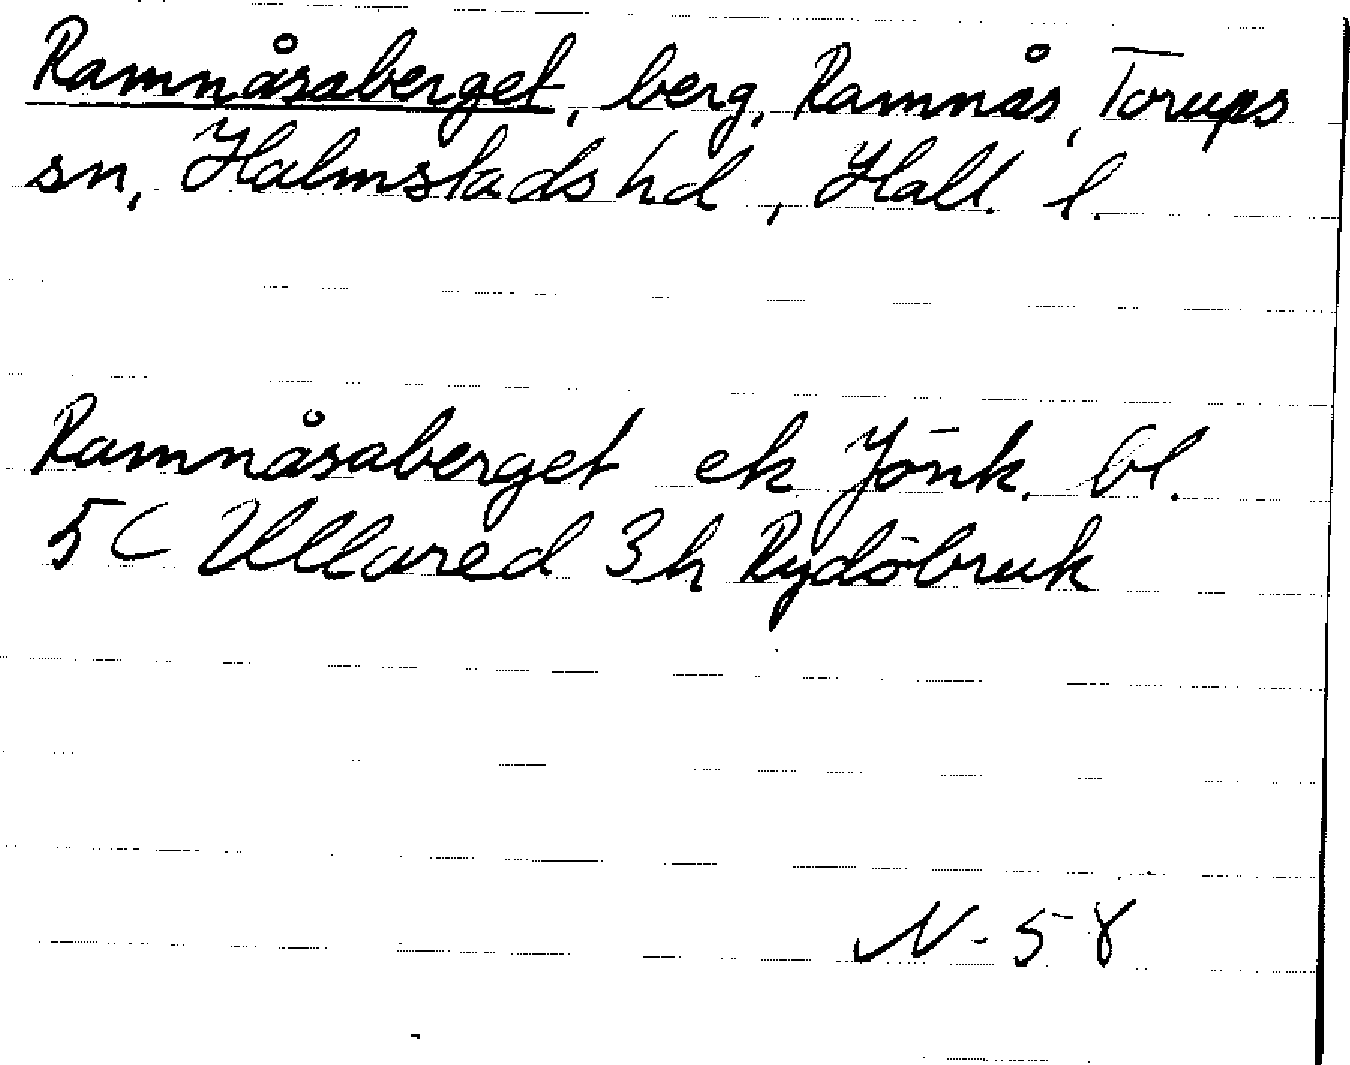 Ramnåsaberget, berg, Ramnås, Torups
sn, Halmstads hd, Hall. l.
Ramnåsaberget ek Jönk. bl.
5C Ullared 3h Rydöbruk
N-58